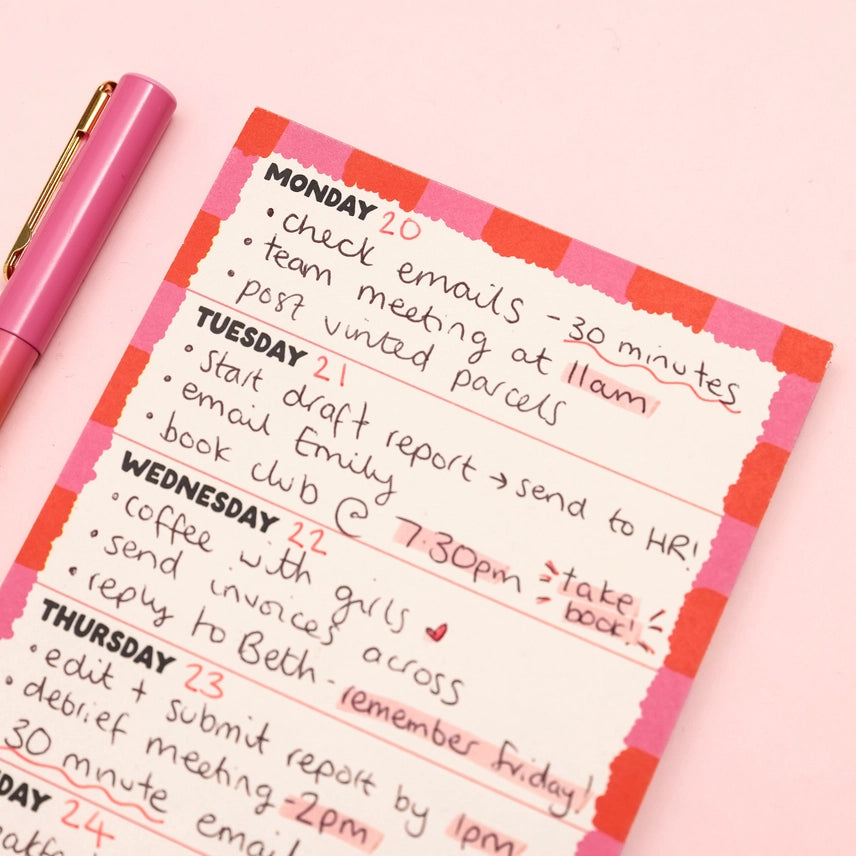 MONDAY 20
• check emails - 30 minutes
• team meeting at 11am
• post vinted parcels
TUESDAY 21
• start draft report → send to HR!
• email Emily
• book club @ 7.30pm take book!
WEDNESDAY 22
• coffee with girls ♥
• send invoices across
• reply to Beth - remember friday!
THURSDAY 23
• edit + submit report by 1pm
• debrief meeting - 2pm
30 minute email
DAY 24